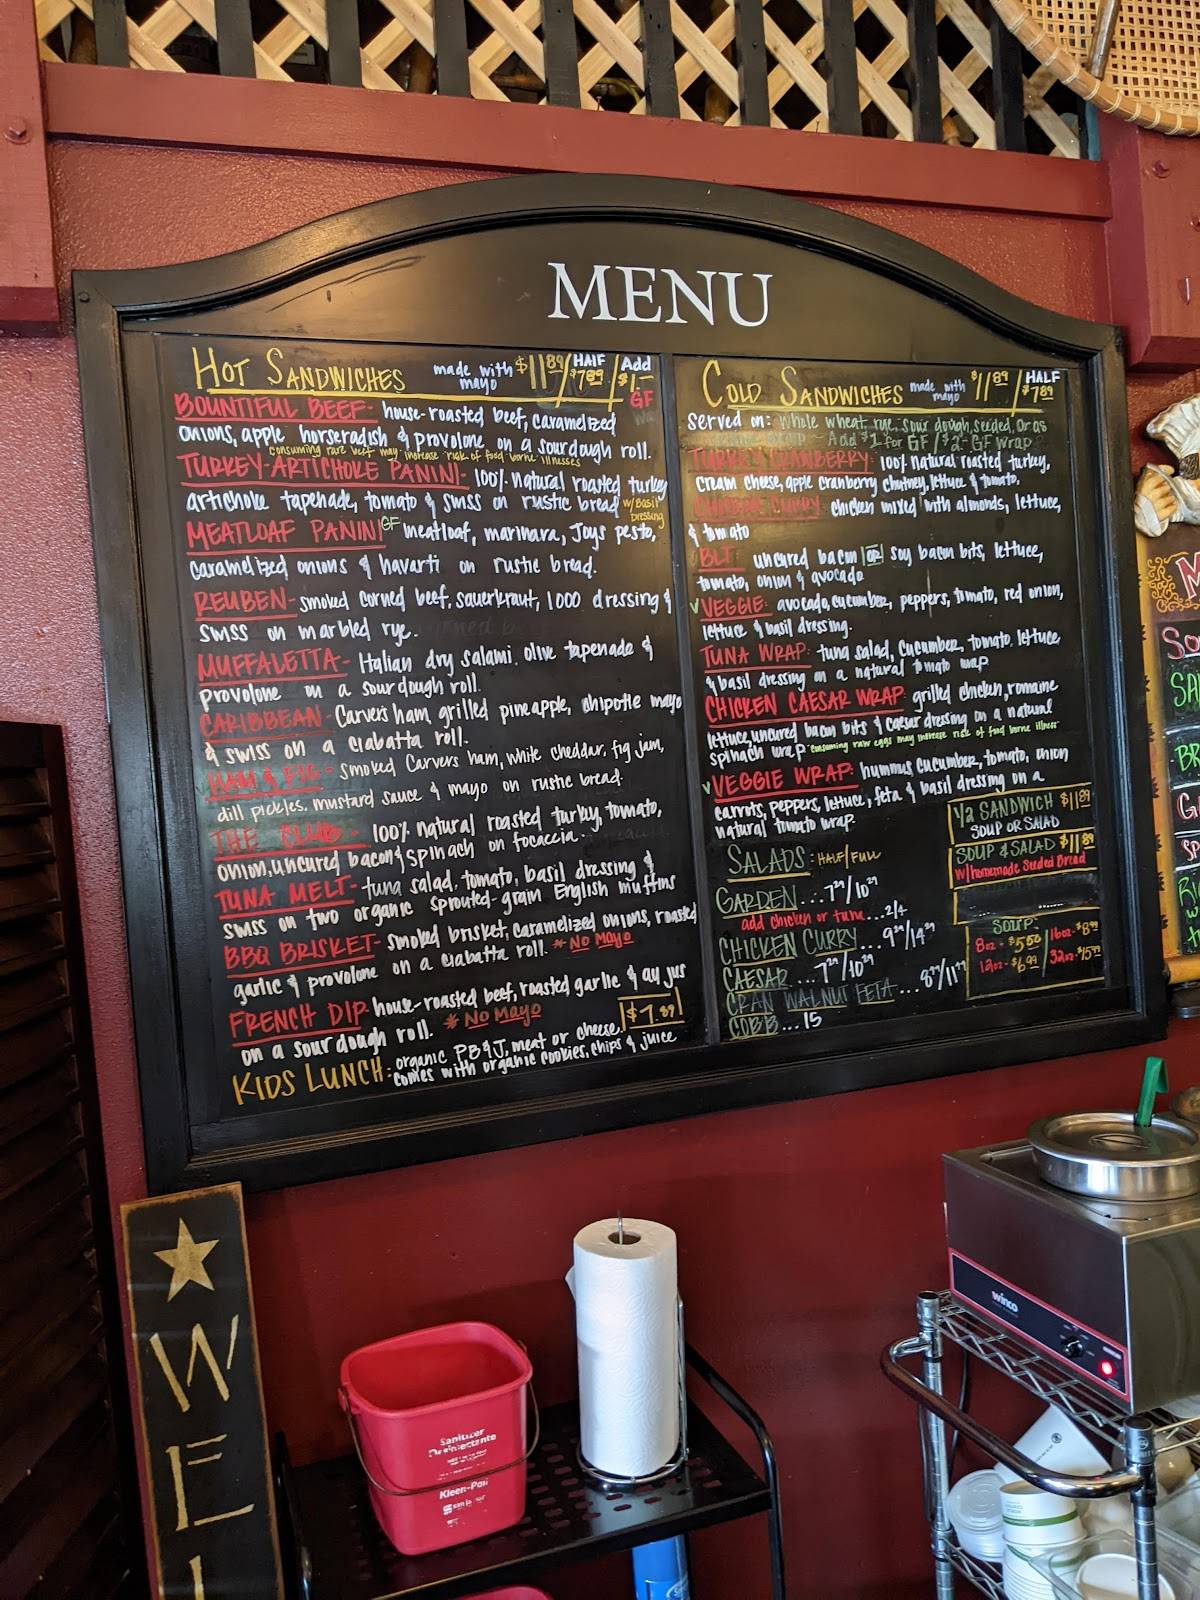 MENU
HOT SANDWICHES made with mayo $11.89 / HALF $7.89 / Add $1.— GF
BOUNTIFUL BEEF- house-roasted beef, caramelized
onions, apple horseradish & provolone on a sourdough roll.
consuming rare beef may increase risk of food borne illnesses
TURKEY-ARTICHOKE PANINI- 100% natural roasted turkey
artichoke tapenade, tomato & swiss on rustic bread w/Basil Dressing
MEATLOAF PANINI GF meatloaf, marinara, Joys pesto,
caramelized onions & havarti on rustic bread.
REUBEN- smoked corned beef, sauerkraut, 1000 dressing &
swiss on marbled rye.
MUFFALETTA- Italian dry salami, olive tapenade &
provolone on a sourdough roll.
CARIBBEAN- Carvers ham, grilled pineapple, chipotle mayo
& swiss on a ciabatta roll.
HAM & FIG- smoked Carvers ham, white cheddar, fig jam,
dill pickles, mustard sauce & mayo on rustic bread.
THE CLUB- 100% natural roasted turkey, tomato,
onion, uncured bacon & spinach on focaccia.
TUNA MELT- tuna salad, tomato, basil dressing &
swiss on two organic sprouted-grain English muffins
BBQ BRISKET- smoked brisket, caramelized onions, roasted
garlic & provolone on a ciabatta roll. * NO MAYO
FRENCH DIP house-roasted beef, roasted garlic & au jus
on a sourdough roll. * NO MAYO
KIDS LUNCH: organic PB&J, meat or cheese. $7.89
comes with organic cookies, chips & juice
COLD SANDWICHES made with mayo $11.89 / HALF $7.89
Served on: whole wheat, rye, sour dough, seeded, or as
Add $1 for GF / $2- GF wrap
TURKEY CRANBERRY: 100% natural roasted turkey,
cream cheese, apple cranberry chutney, lettuce & tomato.
CHICKEN CURRY: chicken mixed with almonds, lettuce,
& tomato
BLT: uncured bacon OR soy bacon bits, lettuce,
tomato, onion & avocado
VEGGIE: avocado, cucumber, peppers, tomato, red onion,
lettuce & basil dressing.
TUNA WRAP: tuna salad, cucumber, tomato, lettuce
& basil dressing on a natural tomato wrap
CHICKEN CAESAR WRAP: grilled chicken, romaine
lettuce, uncured bacon bits & caesar dressing on a natural
spinach wrap consuming raw eggs may increase risk of food borne illness
VEGGIE WRAP: hummus, cucumber, tomato, onion
carrots, peppers, lettuce, feta & basil dressing on a
natural tomato wrap.
1/2 SANDWICH $11.89
SOUP OR SALAD
SOUP & SALAD $11.89
w/homemade Seeded Bread
SALADS: HALF/FULL
GARDEN...7.29/10.29
add chicken or tuna...2/4
CHICKEN CURRY...9.29/14.29
CAESAR...7.29/10.29
CRAN WALNUT FETA...
COBB...15
SOUP:
8oz- $5.50 / 16oz- $8.99
12oz- $6.99 / 32oz- $15.99
WEL
Sanitizer
Desinfectante
Kleen-Pail
winco